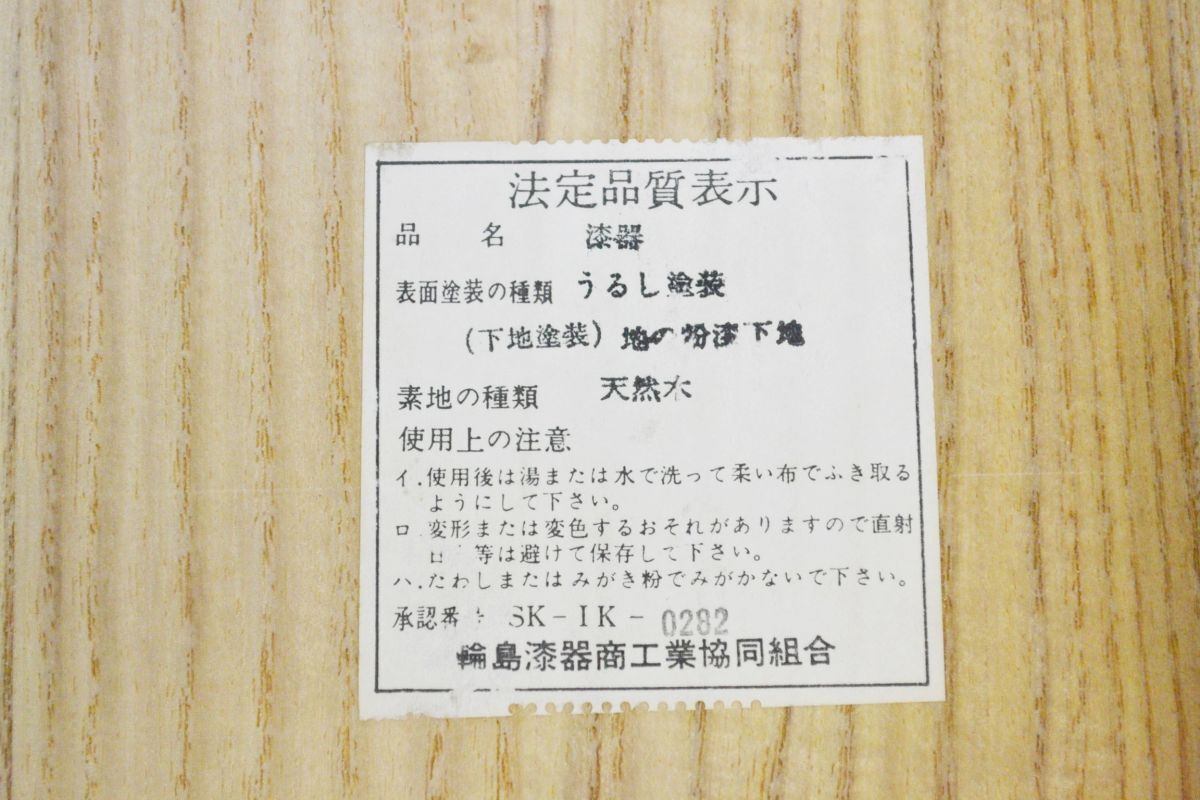 法定品質表示
品 名 漆器
表面塗装の種類 うるし塗装
(下地塗装) 地の粉漆下地
素地の種類 天然木
使用上の注意
イ.使用後は湯または水で洗って柔い布でふき取る
ようにして下さい。
ロ.変形または変色するおそれがありますので直射
日 等は避けて保存して下さい。
ハ.たわしまたはみがき粉でみがかないで下さい。
承認番 SK-IK-0282
輪島漆器商工業協同組合